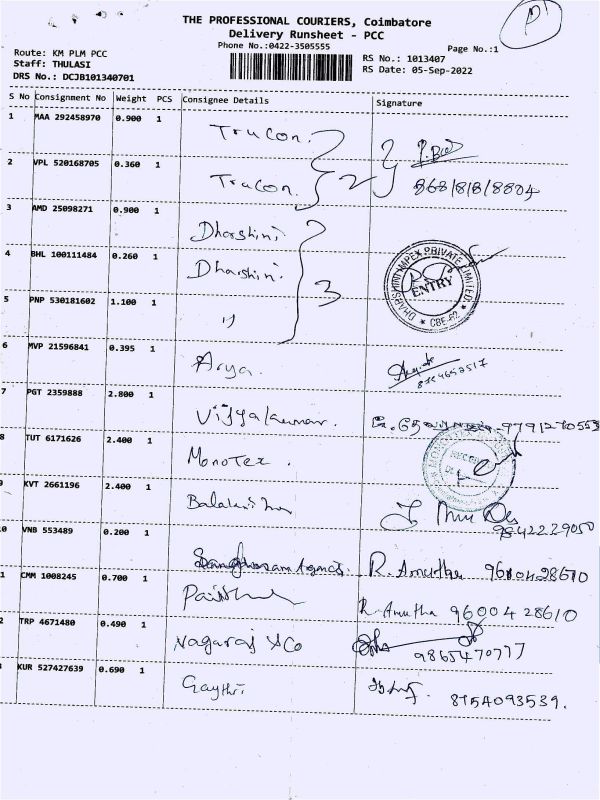 THE PROFESSIONAL COURIERS, Coimbatore
Delivery Runsheet - PCC
Phone No.:0422-3505555
Page No.:1
Route: KM PLM PCC
Staff: THULASI
DRS No.: DCJB101340701
RS No.: 1013407
RS Date: 05-Sep-2022
S No Consignment No Weight PCS Consignee Details Signature
1 MAA 292458970 0.900 1 Trucon.
2 VPL 520168705 0.360 1 Trucon. 2
3 AMD 25098271 0.900 1 Dharshini
4 BHL 100111484 0.260 1 Dharshini. 3
DHARSHINI IMPEX PRIVATE LIMITED
ENTRY
CBE-62
5 PNP 530181602 1.100 1 "
6 MVP 21596841 0.395 1 Arya.
7 PGT 2359888 2.800 1 Vijyakumar.
8 TUT 6171626 2.400 1 Monotex.
9 KVT 2661196 2.400 1
9842229050
0 VNB 553489 0.200 1 R. Amutha
1 CMM 1008245 0.700 1 R. Amutha 9600428610
2 TRP 4671480 0.490 1 Nagaraj & Co 9865470777
3 KUR 527427639 0.690 1 Gaythri 8754093539.